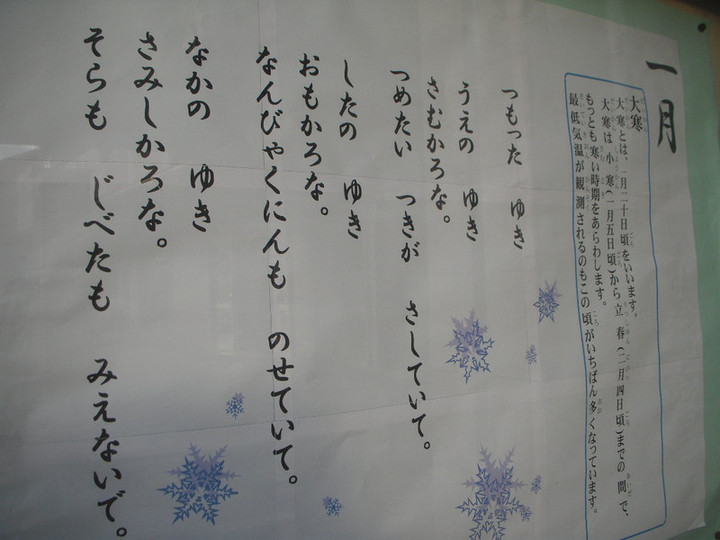 一月
大寒
大寒とは、一月二十日頃をいいます。
大寒は小寒(一月五日頃)から立春(二月四日頃)までの間で、
もっとも寒い時期をあらわします。
最低気温が観測されるのもこの頃がいちばん多くなっています。
つもった ゆき
うえの ゆき
さむかろな。
つめたい つきが さしていて。
したの ゆき
おもかろな。
なんびゃくにんも のせていて。
なかの ゆき
さみしかろな。
そらも じべたも みえないで。